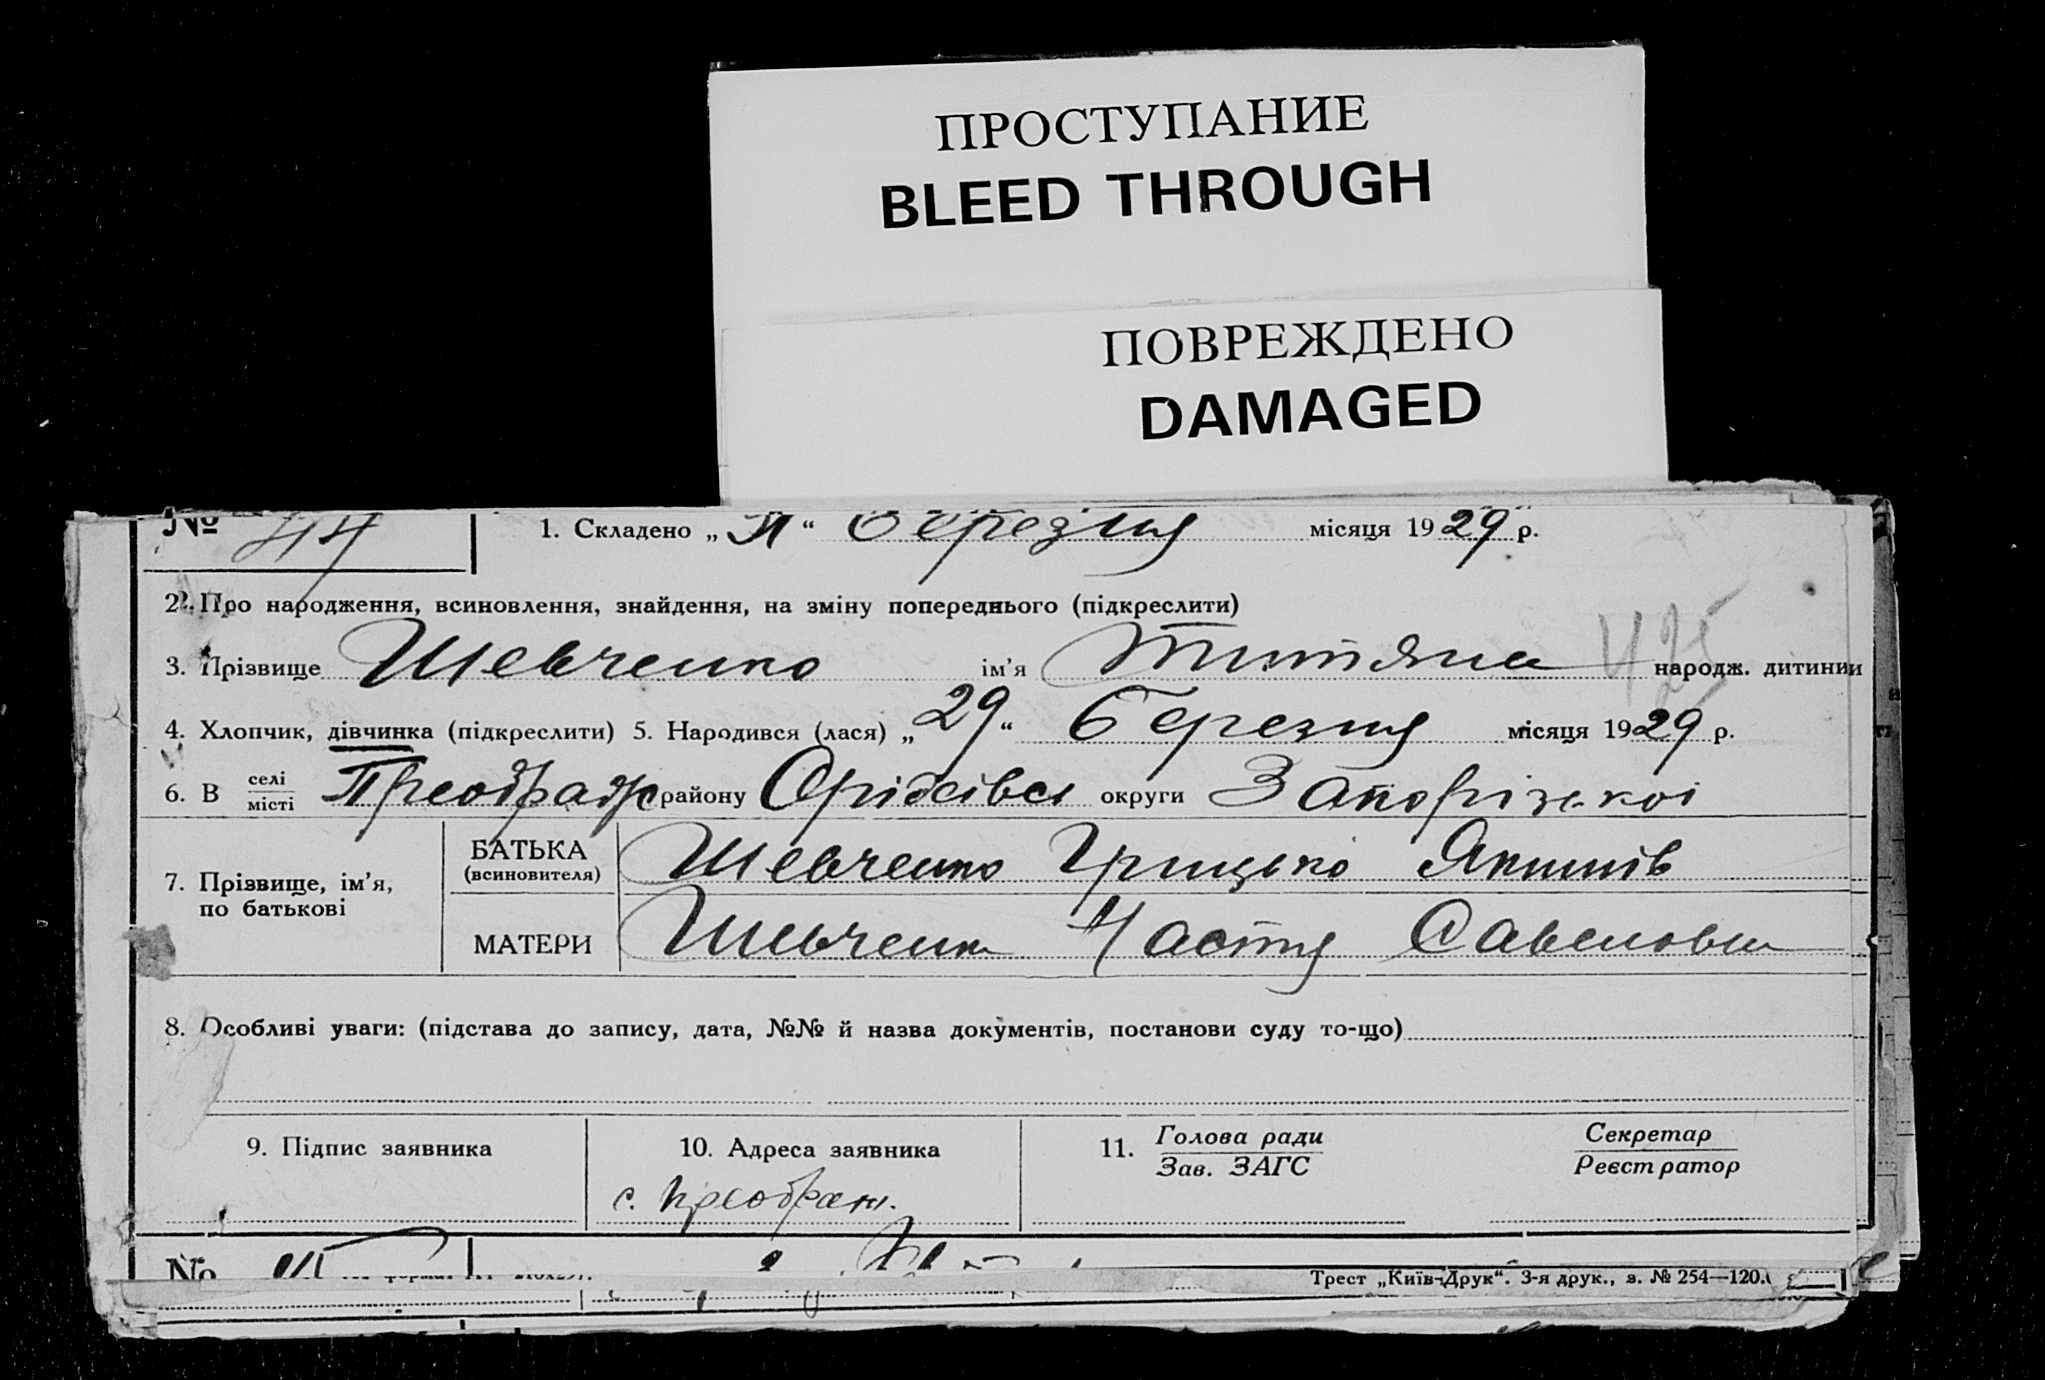 ПРОСТУПАНИЕ
BLEED THROUGH
ПОВРЕЖДЕНО
DAMAGED
№ 44 1. Складено „31“ березня місяця 1929 р.
2. Про народження, всиновлення, знайдення, на зміну попереднього (підкреслити)
425
3. Прізвище Шевченко ім’я Титяна народж. дитинии
4. Хлопчик, дівчинка (підкреслити) 5. Народився (лася) „29“ березня місяця 1929 р.
6. В селі/місті Преображ району Оріхівськ округи Запорізькоі
7. Прізвище, ім’я, по батькові
БАТЬКА (всиновителя) Шевченко Грицько Якимів
МАТЕРИ Шевченк Настя Савеловна
8. Особливі уваги: (підстава до запису, дата, №№ й назва документів, постанови суду то-що)
9. Підпис заявника 10. Адреса заявника 11. Голова ради/Зав. ЗАГС Секретар/Реєстратор
с. Преображ.
№
Трест „Київ-Друк“. 3-я друк., з. № 254—120.